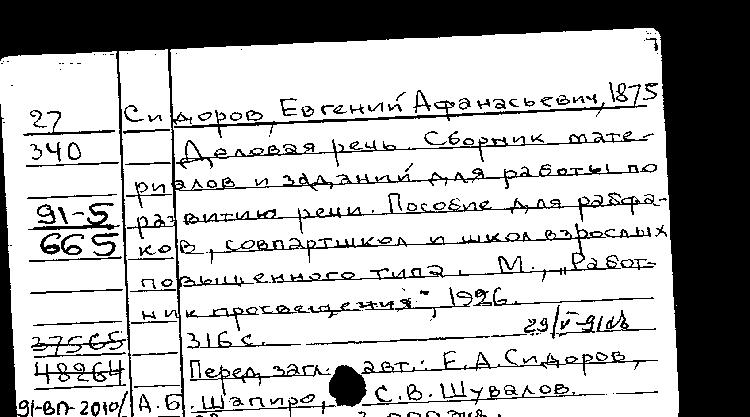 27 Сидоров, Евгений Афанасьевич, 1875
340 Деловая речь. Сборник мате-
риалов и заданий для работы по
91-5 развитию речи. Пособие для рабфа-
665 ков, совпартшкол и школ взрослых
повышенного типа. М., „Работ-
ник просвещения", 1926.
37565 316 с. 29/V-91
48264 Перед загл. авт.: Е.А. Сидоров,
91-ВП-2010/ А.Б. Шапиро, С.В. Шувалов.